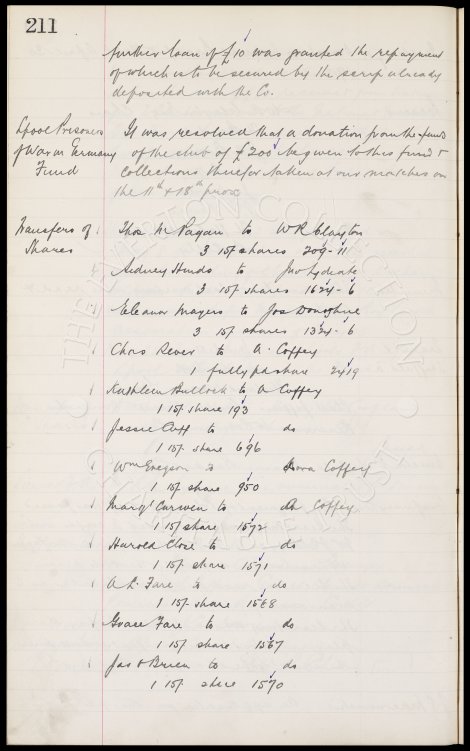 211
further loan of £10 was granted the repayment
of which is to be secured by the scrip already
deposited with the Co.
Lpool Prisoners of War in Germany Fund
It was resolved that a donation from the funds
of the club of £200 be given to this fund &
collections therefor taken at our matches on
the 11th & 18th prox
Transfers of Shares
Thos M Pagan to W R Clayton
3 15/- shares 209-11
Sidney Hinds to Jno
3 15/- shares 1624-6
Eleanor Magers to Jos Donoghue
3 15/- shares 1324-6
Chas Rever to A. Coffey
1 fully pd share 2419
Kathleen Bullock to A Coffey
1 15/- share 193
Jessie Cuff to do
1 15/- share 696
Wm Gregson to Coffey
1 15/- share 950
Margt Curwen to A Coffey
1 15/ share 1572
Harold Close to do
1 15/- share 1571
A. L. Fare to do
1 15/- share 1568
Grace Fare to do
1 15/- share 1567
Jas O'Brien to do
1 15/- share 1570
THE EVERTON COLLECTION
CHARITABLE TRUST